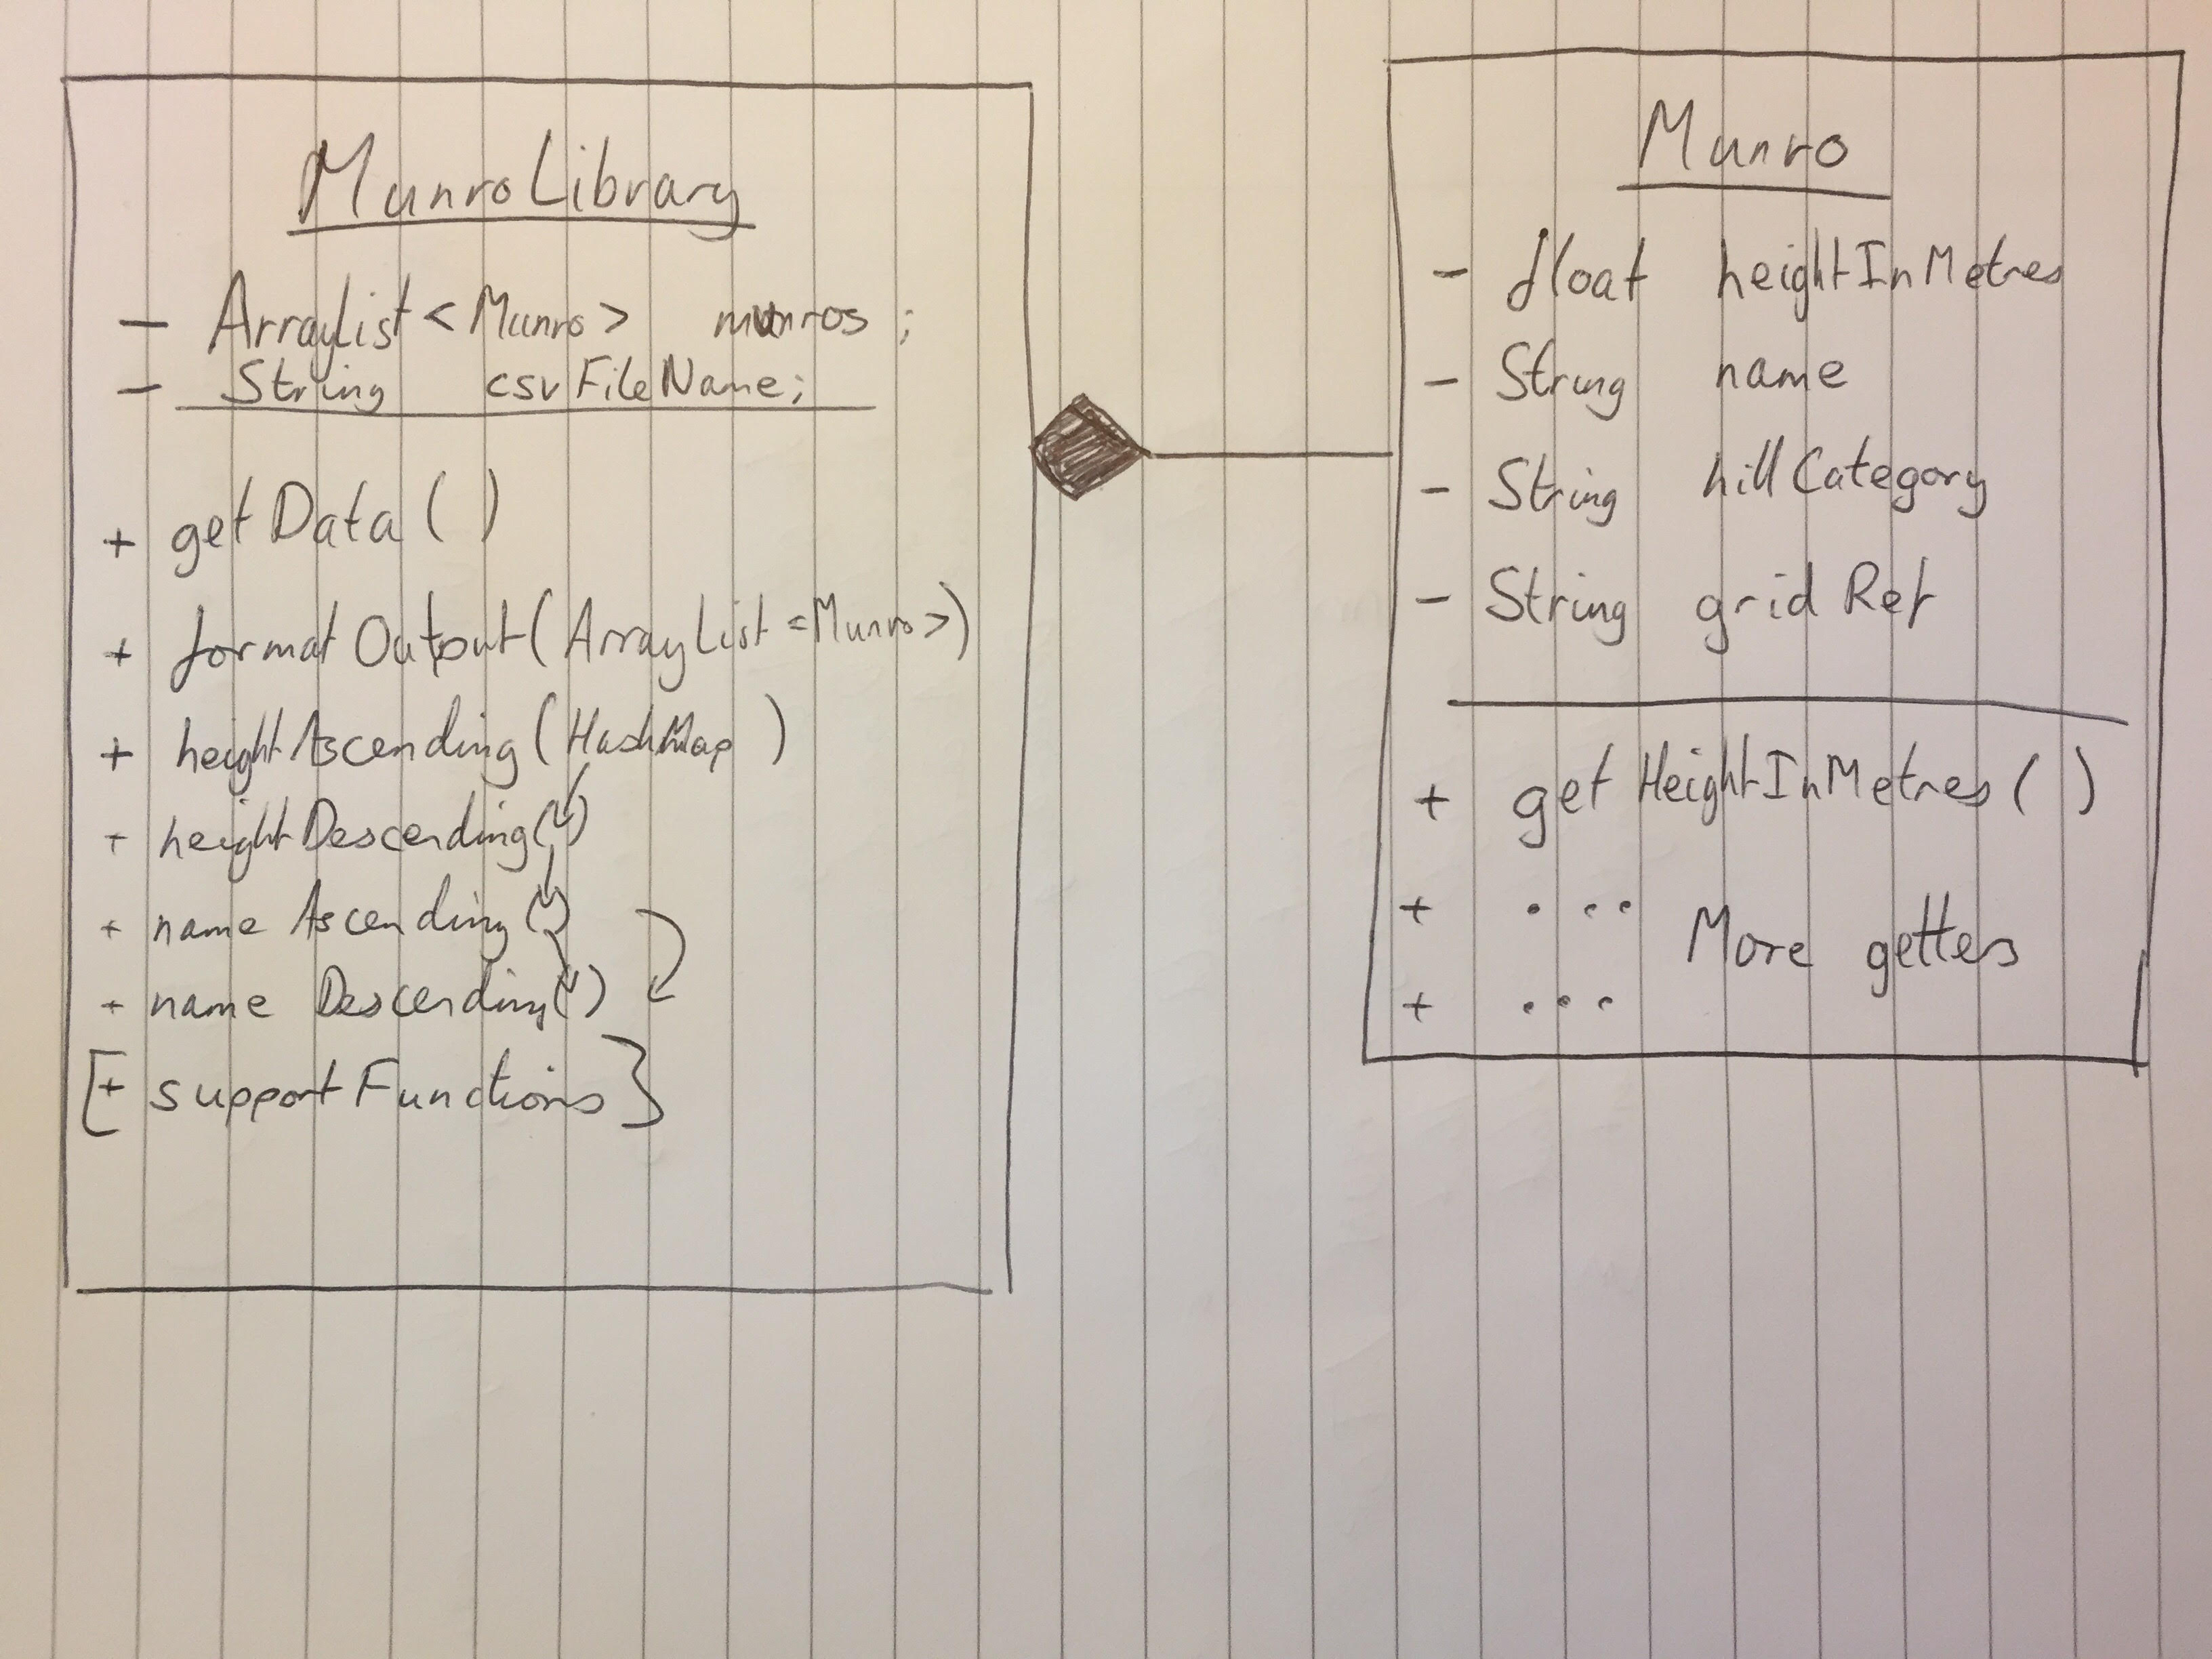 MunroLibrary
- ArrayList<Munro> munros ;
- String csvFileName;
+ getData( )
+ formatOutput(ArrayList<Munro>)
+ heightAscending(HashMap )
+ heightDescending( )
+ nameAscending( )
+ name Descending( )
[+ supportFunctions}
Munro
- float heightInMetres
- String name
- String hillCategory
- String gridRef
+ getHeightInMetres( )
+ ... More getters
+ ...